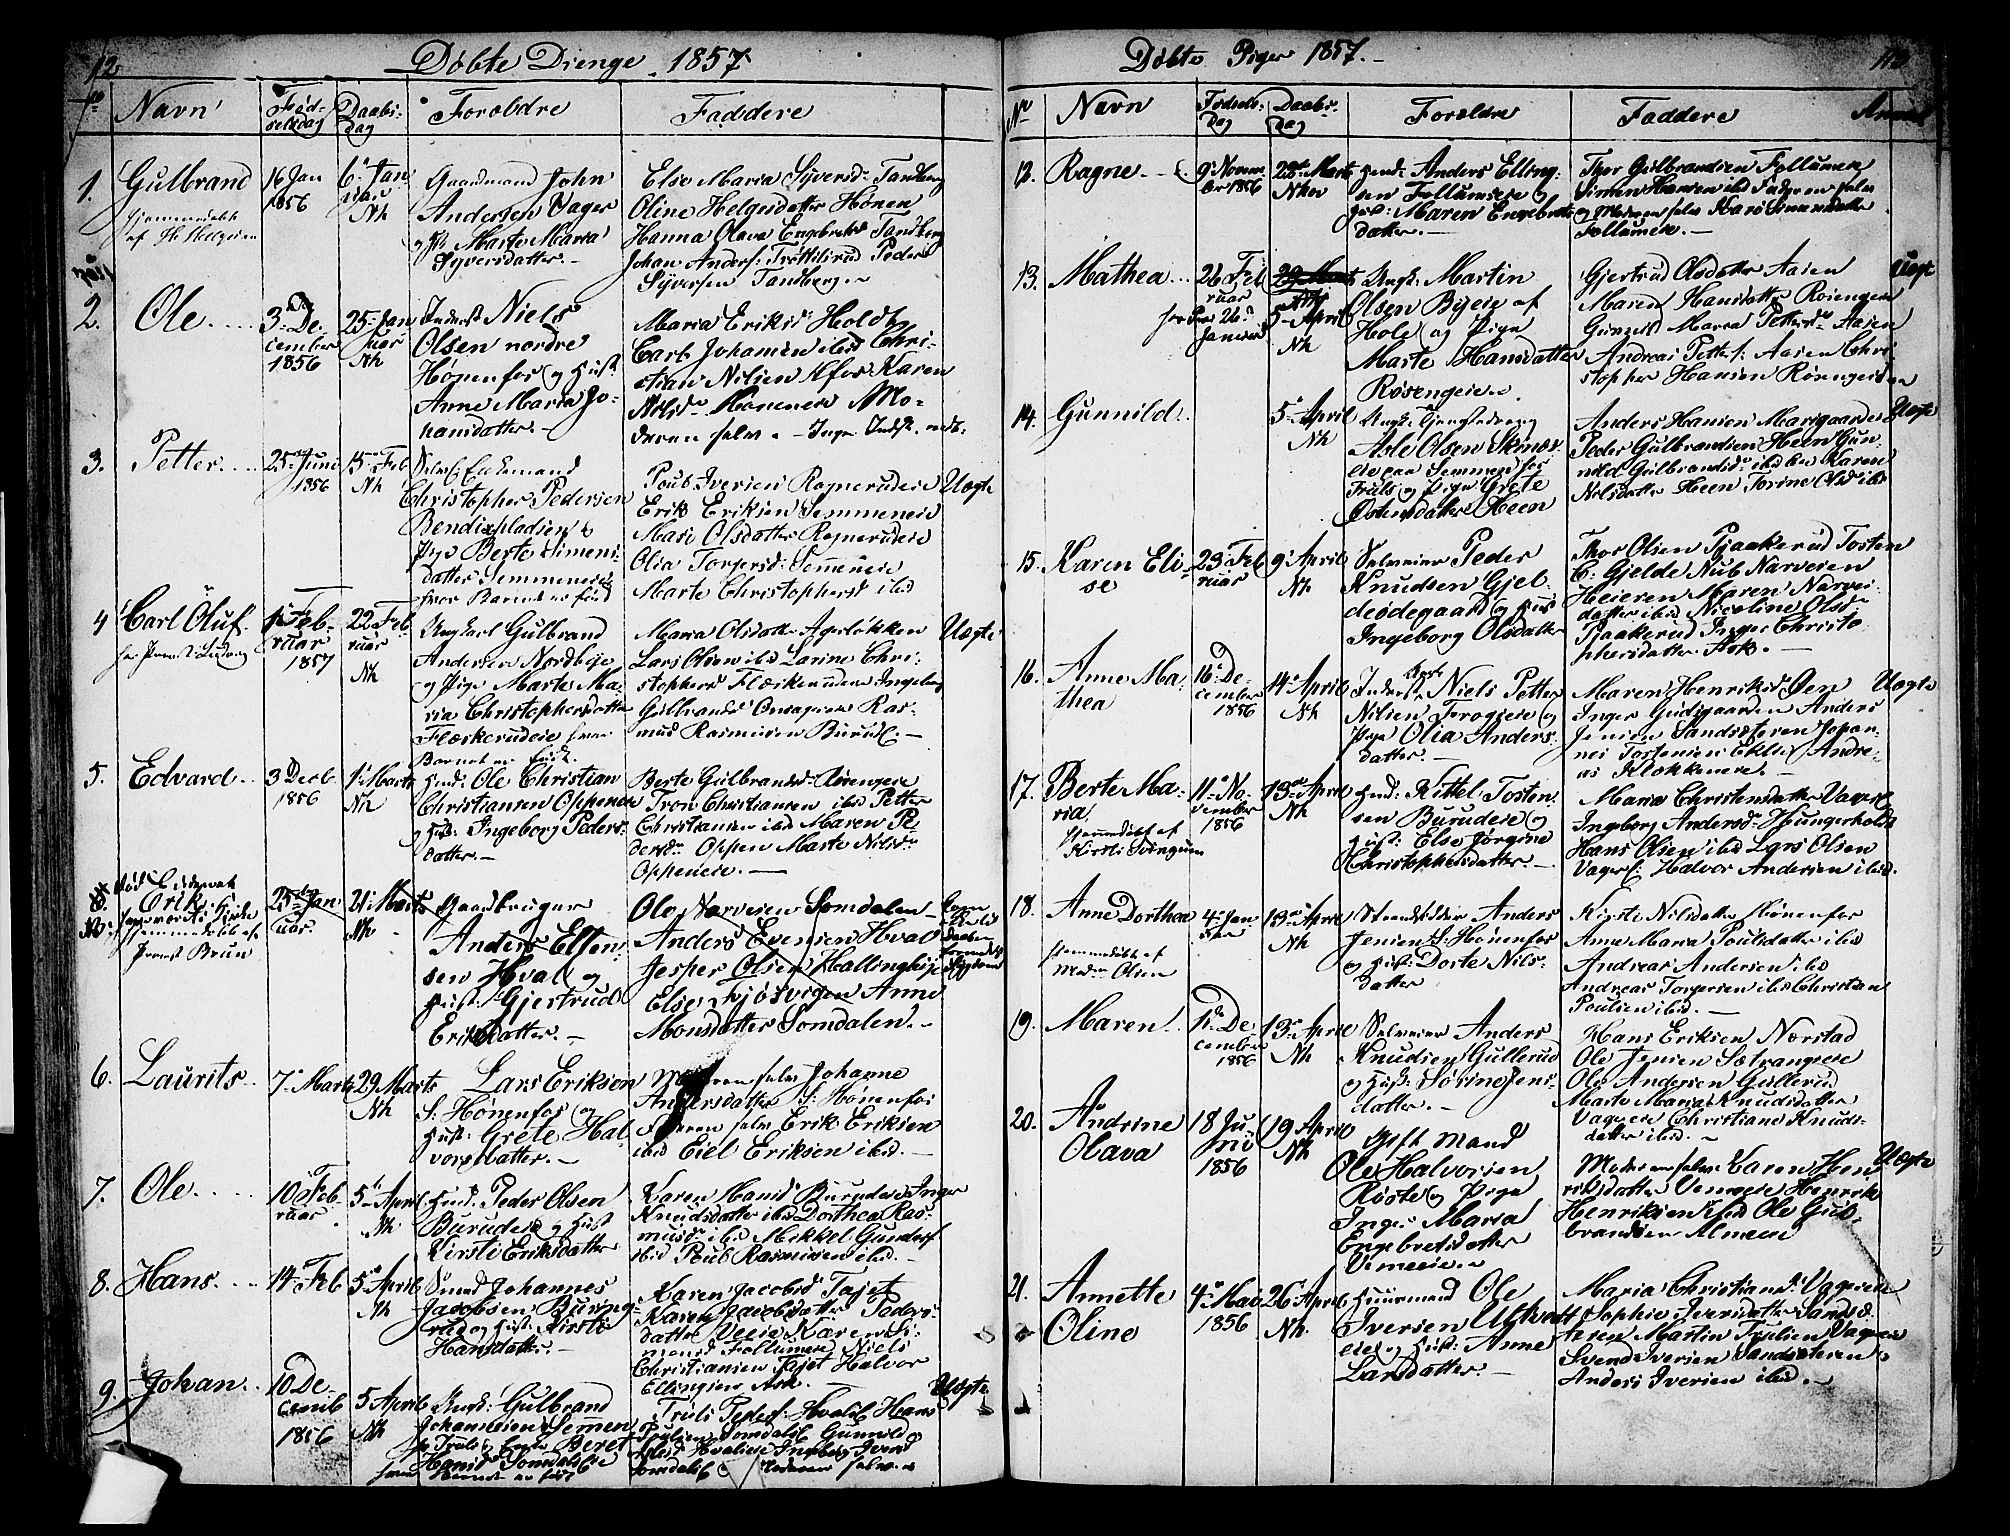 12
Døbte Drenge 1857
No
Navn
Fød-
selsdag
Daabs-
dag
Forældre
Faddere
1.
Gulbrand
hjemmedøbt
af H. Helgesen
16 Jan
1856
6 Jan
uar
Nk
Gaardmand John
Andersen Vager
og H: Marte Maria
Syversdatter. –
Else Maria Syversd. Tandberg
Oline Helgesdatter Hønen
Hanna Olava Engebretsd Tandberg
Johan Anders: Trøttelsrud Peder
Syversen Tandberg. –
2.
Ole
3 De-
cember
1856
25 Jan
uar
Nk
Inderst Niels
Olsen nordre
Hønenfos og Hust
Anne Maria Jo-
hansdatter. –
Maria Eriksd Holdt
Carl Johansen ibid Chri-
stian Nilsen Hfos Karen
Nilsd. Hønen Mo-
deren selv. –
3.
Petter
25 Juni
1856
15 Feb
Nk
Enkemand
Christopher Pedersen
Bendixpladsen &
Pige Berte Simens-
datter Semmeneie
hvor Barnet er født
Poul Iversen Ragnerudeie
Erik Eriksen Semmeneie
Mari Olsdatter Ragnerudeie
Olia Torgersd: Semmeneie
Marte Christophersd ibid
Uægte
4
Carl Oluf
1 Feb-
ruar
1857
22 Feb-
ruar
Nk
Ungkarl Gulbrand
Andersen Nordbyeie
og Pige Marte Ma-
ria Christophersdatter
Flaskerudeie hvor
Barnet er født.
Maria Olsdatter Ageløkken
Lars Olsen ibid Larine Chri-
stophersd Flaskerudeie Ingeborg
Gulbrandsd Onsageie Ras-
mus Rasmusen Burud. –
Uægte
5.
Edvard
3 Decb
1856
1 Marts
Nk
Husd: Ole Christian
Christiansen Oppeneie
og Hust: Ingeborg Peders-
datter. –
Berte Gulbrandsd
Tron Christiansen ibid Petter
Christiansen ibid Maren Pe-
dersd. Oppen Marte Nilsd.
Oppeneie. –
Erik
hjemmedøbt af
Præst Brun
25 Jan
uar.
21 Marts
Nk
Gaardbruger
Anders Ellen-
sen Hval og
Hust: Gjertrud
Eriksdatter. –
Ole Narvesen Somdalen
Anders Evensen Hval
Jesper Olsen Hallinghje
Else Fjøsvigen Anne
Monsdatter Somdalen. –
6.
Laurits
7 Marts
29 Marts
Nk
Lars Eriksen
S: Hønenfos og
Hust: Grete Hal-
vorsdatter. –
Moderen selv Johanne
Andersdatter S: Hønenfos
Faderen selv Erik Eriksen
ibid Eiel Eriksen ibid. –
7.
Ole
10 Feb-
ruar.
5 April
Nk
Husd: Peder Olsen
Burudeie og Hust
Kirsti Eriksdatter
Karen Hansd Burudeie Inger
Knudsdatter ibid Dorthea Ras-
musd ibid Mikkel Gunders.
ibid Poul Rasmusen ibid. –
8.
Hans
14 Feb
5 April
Nk
Johannes
Jacobsen Buring-
rud og Hust: Kirsti
Hansdatter. –
Karen Jacobsd Tajet
Karen Jacobsdatter Peders-
datter Veeie Karen Si-
mensd Follumeie Niels
Christiansen Tajet Halvor
Ellingsen Ask. –
9.
Johan
10 De-
cemb
1856
5 April
Nk
Ungk: Gulbrand
Johannesen Semmen
Beret
Hansd Somdalseie
hvor Barnet er født
Truls Peders: Hvalsb Hans
Poulsen Somdalsb Gunnild
Hvalseie Ingeborg Iversd
Somdalsb Moderen selv. –
Uægte
Døbte Piger 1857. –
113
No
Navn
Fødsels-
Dag
Daabs-
Dag
Forældre
Faddere
Anmærk
12.
Ragne
9 Novem-
ber 1856
22 Marts
Nk
Husd: Anders Elling-
sen Follumeie og
Hust: Maren Engebrets-
datter. –
Thor Gulbrandsen Follumeie
Simen Hansen ibid Faderen selv
og Moderen selv Kari Simensdatter
Follumeie. –
13.
Mathea
26 Feb
ruar
Januar
29 Marts
5 April
Nk
Ungk: Martin
Olsen Byeie af
Hole og Pige
Marte Hansdatter
Røsengeien.
Gjertrud Olsdatter Aasen
Maren Hansdatter Rosengen
Gunild Maria Pettersd. Aasen
Andreas Petters: Aasen Chri-
stopher Hansen Røsengeien
Uægte
14.
Gunnild
5 April
Nk
Ungk: Tjenestedreng
Asle Olsen
Semmen
Truls og Pige Grete
Østensdatter Heen
Anders Hansen Marigaarden
Peder Gulbrandsen Heen Gun-
nild Gulbrandsd. ibid Karen
Nilsdatter Heen Torine Olsd ibid
Uægte
15.
Karen Eli-
se
23 Feb
ruar
9 April
Nk
Selveier Peder
Knudsen Gjel-
deødegaard og Hust
Ingeborg Olsdatter
Thor Olsen Pjaakerud Tosten
C: Gjelde Nub Narvesen
Heieren Maren Narves-
datter ibid Nicoline Olsd
Pjaakerud Inger Christo-
phersdatter Ask. –
16.
Anne Ma-
thea
16 De-
cember
1856
14 April
Nk
Inderst Niels Petter
Nilsen Frogeie og
Pige Olia Anders-
datter. –
Maren Henriksd Øen
Inger Gudsgaarden Anders
Jensen Sandsæteren Johan-
nes Tostensen Eklu Andre-
as Klokkeneie. –
Uægte
17.
Berte Ma-
ria,
hjemmedøbt af
Kirsti
11 No-
vember
1856
13 April
Nk
Husd: Kittel Tosten-
sen Burudeie og
Hust: Else Jørgine
Christophersdatter. –
Maria Christensdatter Vager
Ingeborg Andersd. Hungerholdt
Hans Olsen ibid Lars Olsen
Vager Halvor Andersen ibid.
18.
Anne Dorthea
hjemmedøbt af
Olsen
4 Jan
13 April
Nk
Anders
Jensen S: Hønenfos
og Hust: Dorte Nils-
datter
Kirsti Nilsdatter Hønenfos
Anne Maria Poulsdatter ibid
Andreas Andersen ibid
Andreas Torgersen ibid Christian
Poulsen ibid. –
19.
Maren
11 De-
cember
1856
13 April
Nk
Selveier Anders
Knudsen Gullerud
og Hust: Sørine Jens-
datter. –
Hans Eriksen Nærstad
Ole Jensen Sætrangeie
Ole Andersen Gullerud
Marte Maria Knudsdatter
Vageeie Christiane Knuds-
datter ibid. –
20.
Andrine
Olava
18 Ju-
ni
1856
19 April
Nk
Gift Mand
Ole Halvorsen
Røste og Pige
Inger Maria
Engebretsdatter
Vemeeie. –
Moderen selv Karen Hen-
riksdatter Vemeeie Henrik
Henriksen ibid Ole Gul-
brandsen Almeeie
Uægte
21.
Annette
Oline
4 Mai
1856
26 April
Nk
Huusmand Ole
Iversen
og Hust: Anne
Larsdatter. –
Maria Christiansd Vageeie
Sophie Iversdatter Sandsæ-
teren Martin Trulsen Vageeie
Svend Iversen Sandsæteren
Anders Iversen ibid. –